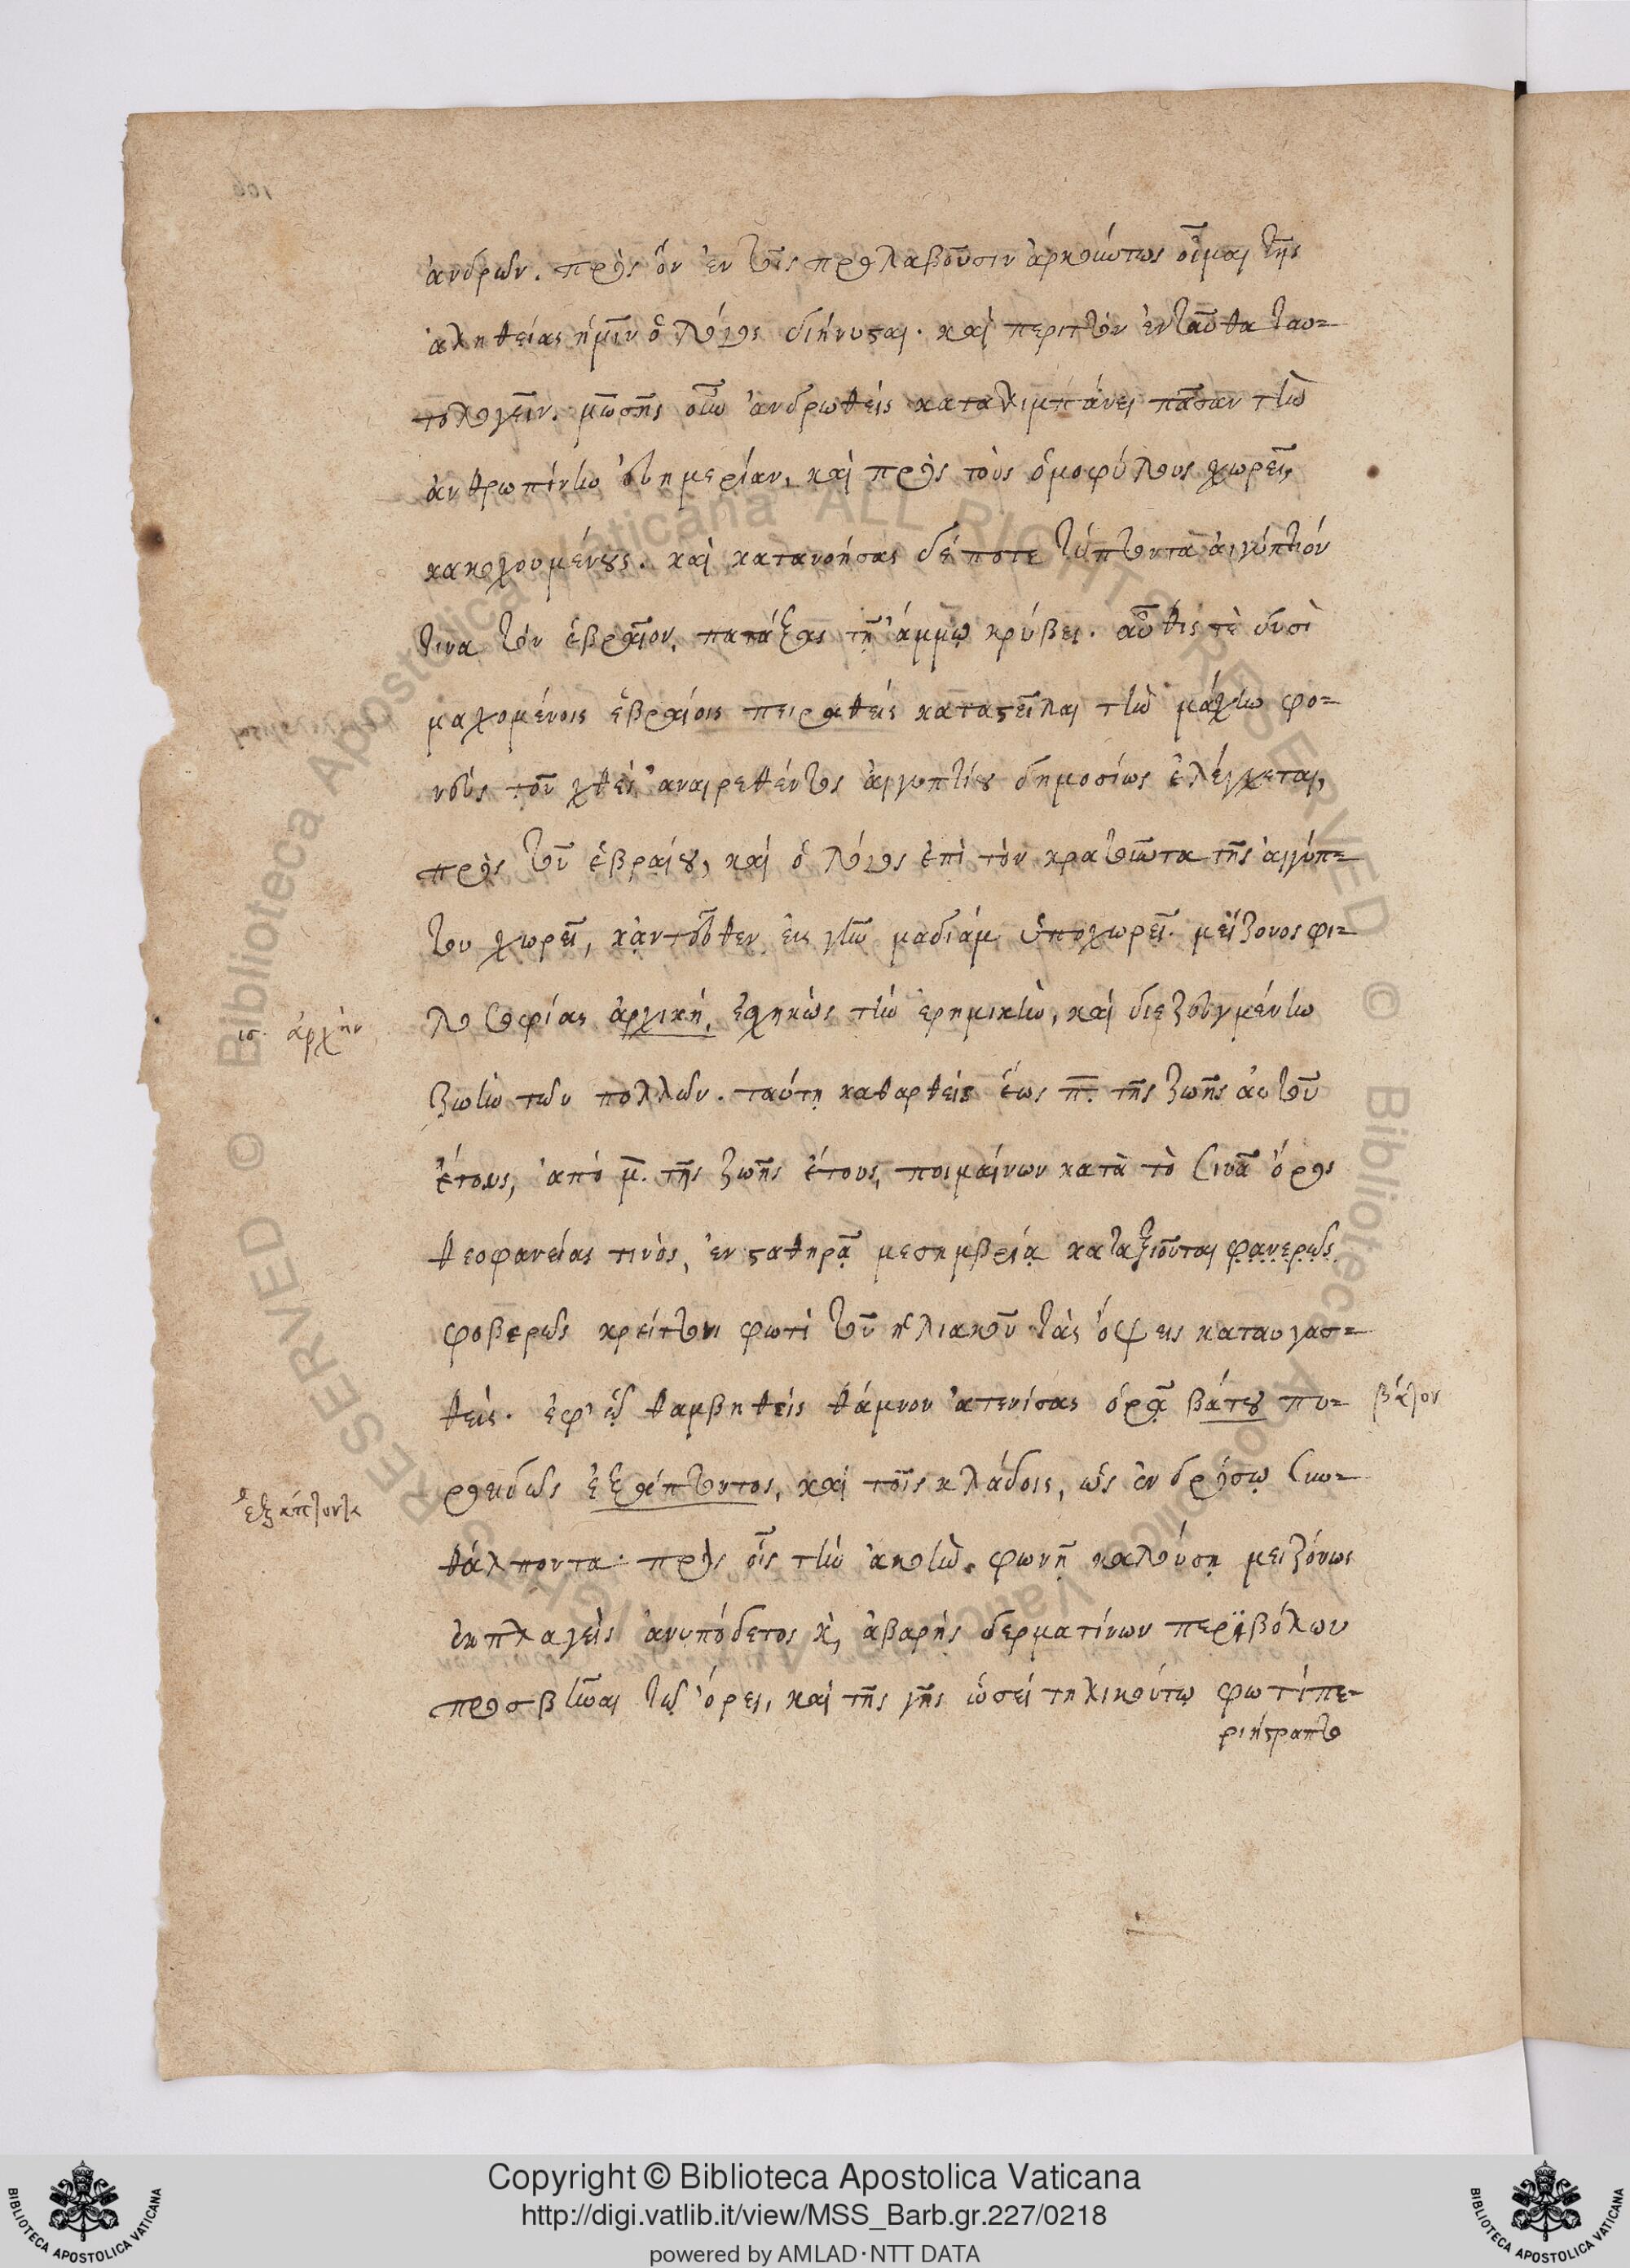 ἀνδρῶν. πρὸς ὃν ἐν τοῖς προλαβοῦσιν ἀρκούντως οἶμαι τῆς
ἀληθείας ἡμῖν ὁ λόγος διήνυσται. καὶ περιττὸν ἐνταῦθα ταυ-
τολογεῖν. μωσῆς οὖν ἀνδρωθεὶς καταλιμπάνει πᾶσαν τὴν
ἀνθρωπίνην εὐημερίαν, καὶ πρὸς τοὺς ὁμοφύλους χωρεῖ,
κακουχουμένους. καὶ κατανοήσας δέ ποτε τύπτοντα αἰγύπτιόν
τινα τὸν ἑβραῖον, πατάξας τῇ ἄμμῳ κρύβει. αὖθίς τε δυσὶ
μαχομένοις ἑβραίοις πειραθεὶς καταστεῖλαι τὴν μάχην φο-
νεὺς τοῦ χθὲς ἀναιρεθέντος αἰγυπτίου δημοσίως ἐλέγχεται,
πρὸς τοῦ ἑβραίου, καὶ ὁ λόγος ἐπὶ τὸν κρατοῦντα τῆς αἰγύπ-
του χωρεῖ, κἀντεῦθεν εἰς γῆν μαδιὰμ ὑποχωρεῖ. μείζονος φι-
λοσοφίας ἀρχικὴ, ἐσχηκὼς τὴν ἐρημικὴν, καὶ διεζευγμένην
ζωὴν τῶν πολλῶν. ταύτῃ καθαρθεὶς ἕως π. τῆς ζωῆς αὐτοῦ
ἔτους, ἀπὸ μ. τῆς ζωῆς ἔτους, ποιμαίνων κατὰ τὸ σινᾶ ὄρος
θεοφανείας τινὸς, ἐν σταθηρᾷ μεσημβρίᾳ καταξιοῦται φανερῶς
φοβερῶς κρείττονι φωτὶ τοῦ ἡλιακοῦ τὰς ὄψεις καταυγασ-
θείς. ἐφ' ᾧ θαμβηθεὶς θάμνον ἀτενίσας ὁρᾷ βάτου πυ-
ροειδῶς ἐξάπτοντος, καὶ τοῖς κλάδοις, ὡς ἐν δρόσῳ συν-
θάλποντα. πρὸς οἷς τὴν ἀκοὴν φωνῇ καλούσῃ μειζόνως
ἐκπλαγεὶς ἀνυπόδετος κ, ἀβαρὴς δερματίνων περιβόλων
προσβῆναι τῷ ὄρει, καὶ τῆς γῆς ὡσεὶ τηλικούτῳ φωτὶ πε-
ριήστραπτο
ισ. ἀρχὴν
βάτον
ἐξάπτοντα
Copyright © Biblioteca Apostolica Vaticana
http://digi.vatlib.it/view/MSS_Barb.gr.227/0218
powered by AMLAD·NTT DATA
BIBLIOTECA APOSTOLICA VATICANA
BIBLIOTECA APOSTOLICA VATICANA